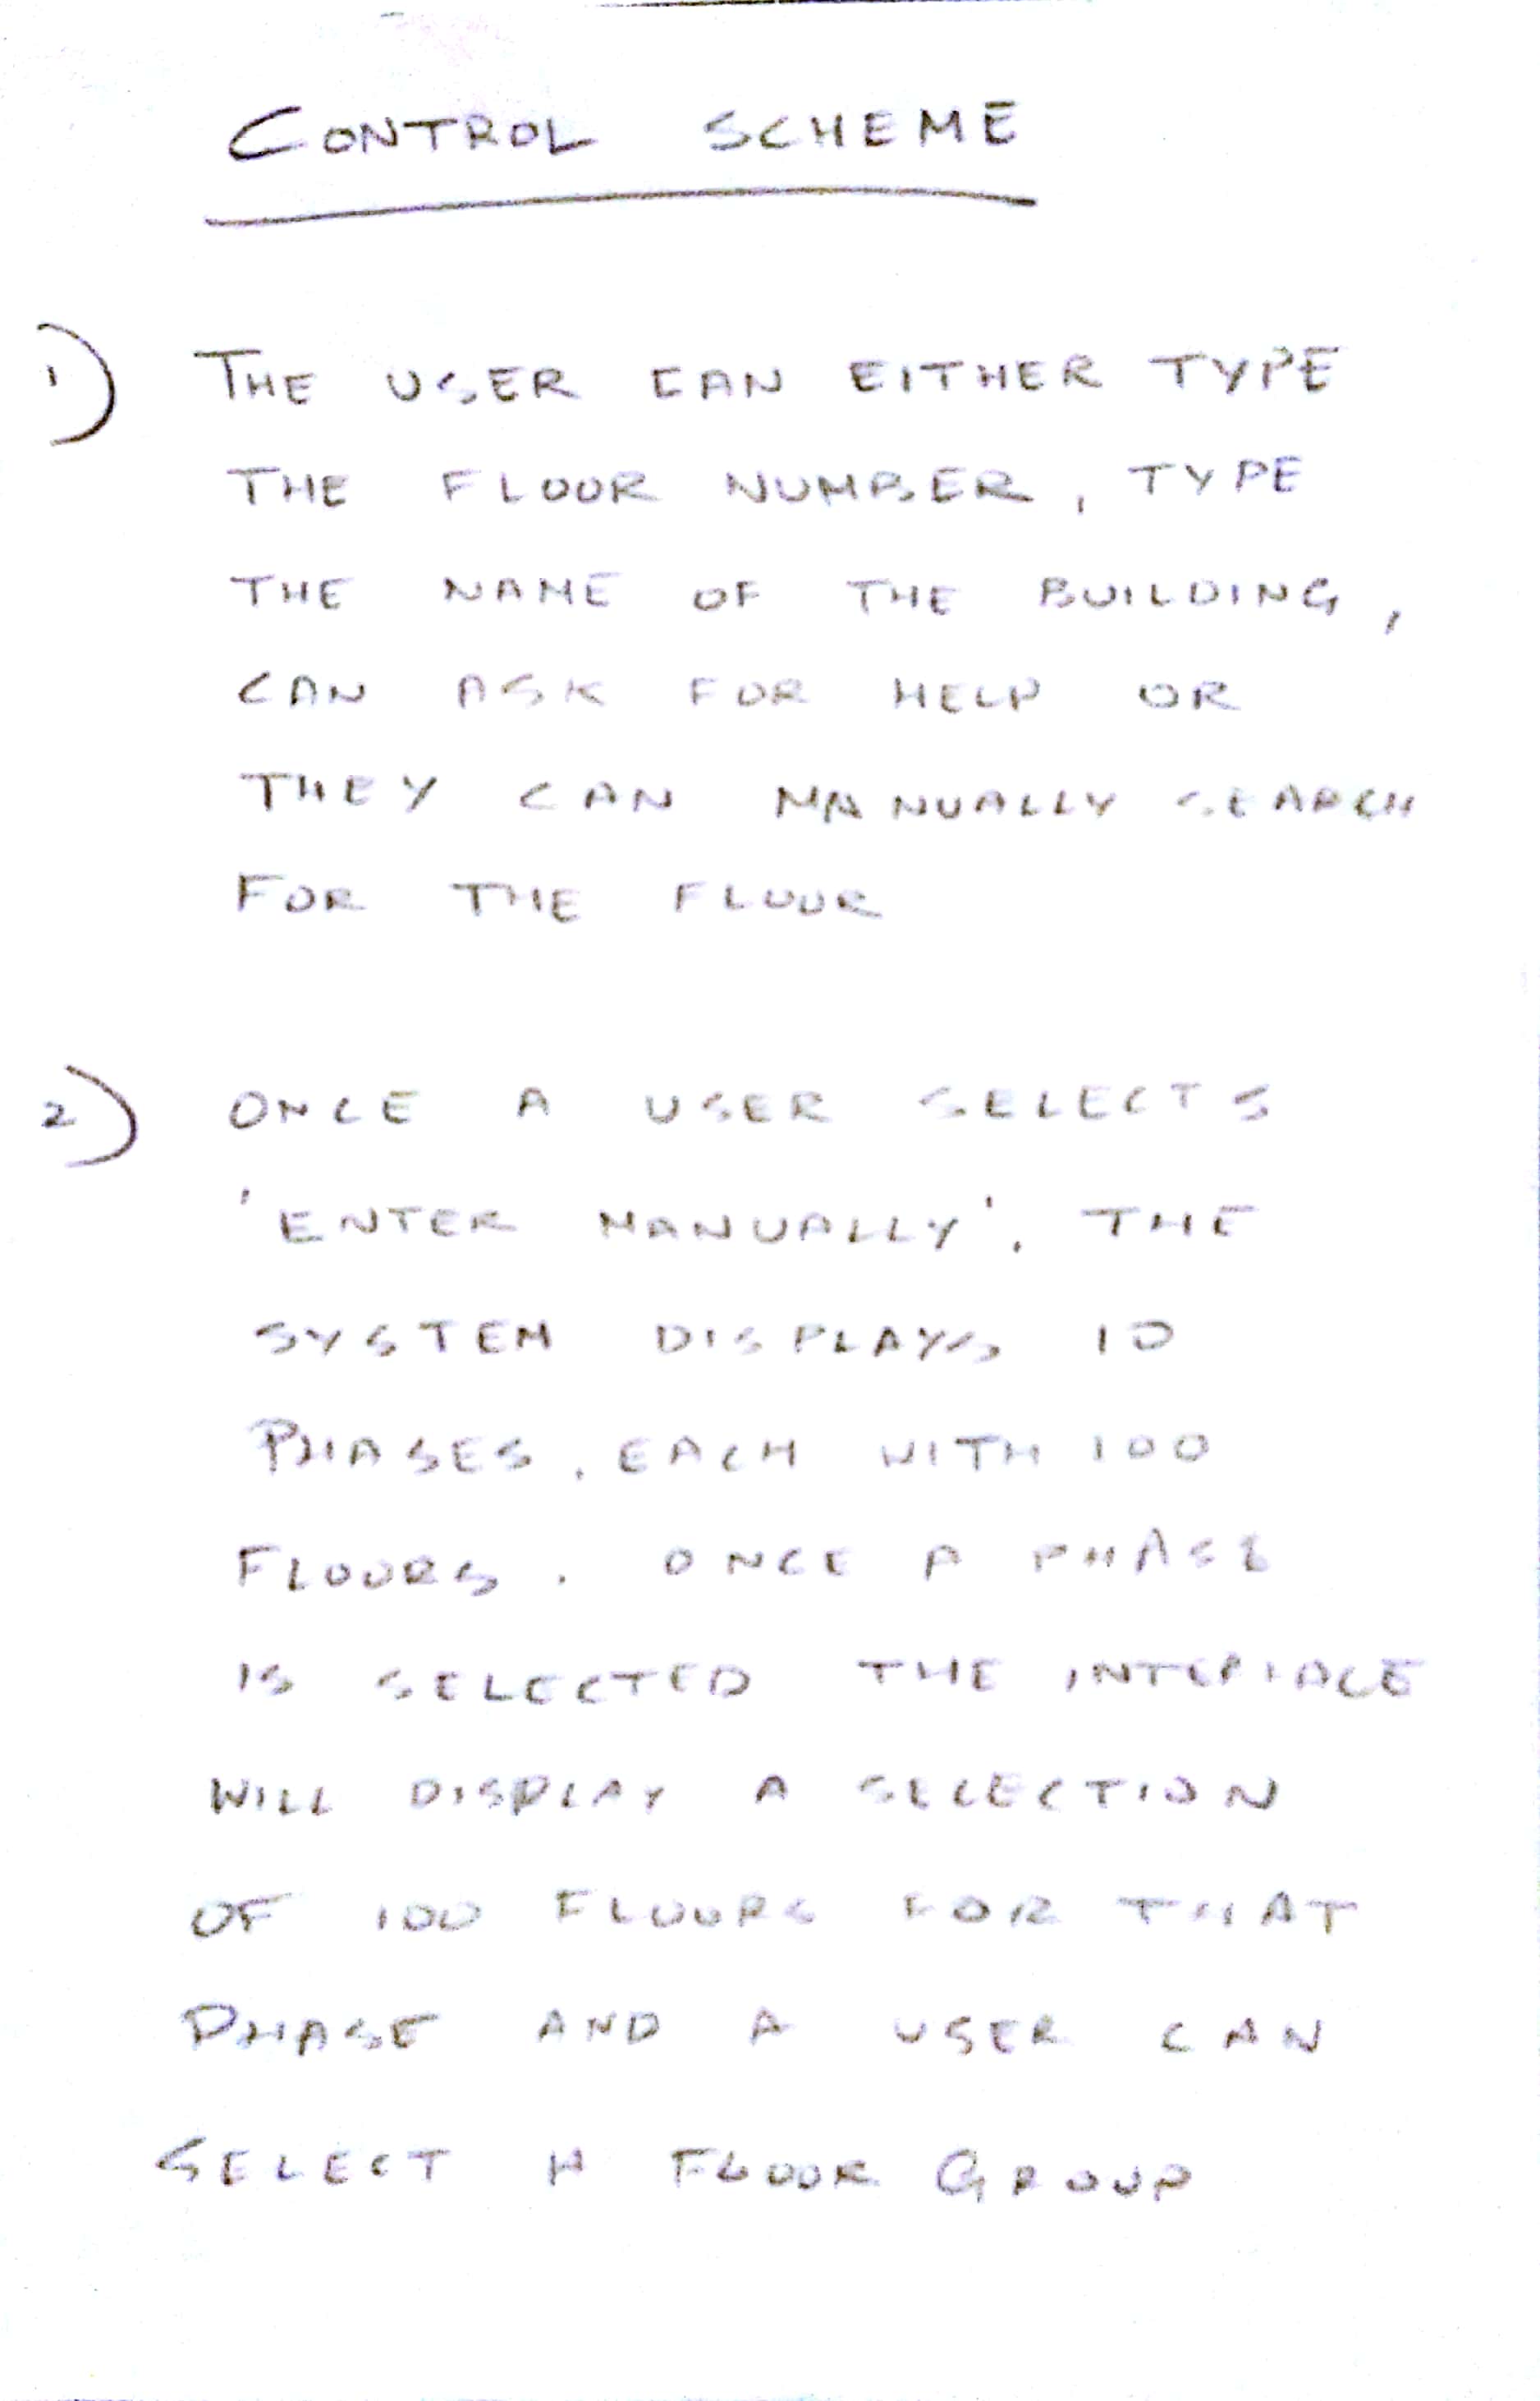 CONTROL SCHEME
1) THE USER CAN EITHER TYPE
THE FLOOR NUMBER, TYPE
THE NAME OF THE BUILDING,
CAN ASK FOR HELP OR
THEY CAN MANUALLY SEARCH
FOR THE FLOOR
2) ONCE A USER SELECTS
'ENTER MANUALLY', THE
SYSTEM DISPLAYS 10
PHASES, EACH WITH 100
FLOORS. ONCE A PHASE
IS SELECTED THE INTERFACE
WILL DISPLAY A SELECTION
OF 100 FLOORS FOR THAT
PHASE AND A USER CAN
SELECT A FLOOR GROUP